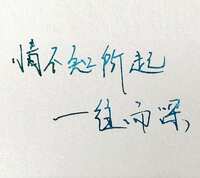 情不知所起
一往而深，